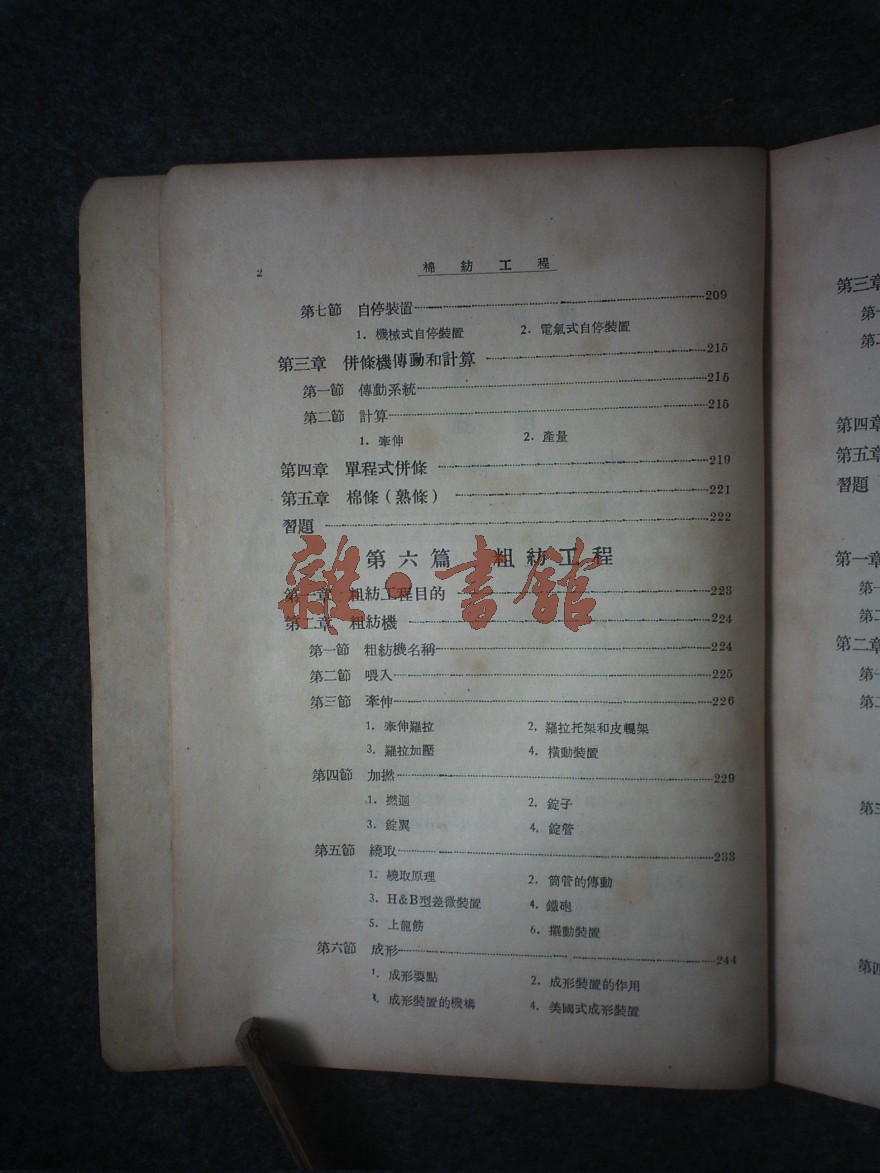 2
棉紡工程
第七節 自停裝置 209
1. 機械式自停裝置 2. 電氣式自停裝置
第三章 併條機傳動和計算 215
第一節 傳動系統 215
第二節 計算 215
1. 牽伸 2. 產量
第四章 單程式併條 219
第五章 棉條（熟條） 221
習題 222
第六篇 粗紡工程
第一章 粗紡工程目的 223
第二章 粗紡機 224
第一節 粗紡機名稱 224
第二節 喂入 225
第三節 牽伸 226
1. 牽伸羅拉 2. 羅拉托架和皮輥架
3. 羅拉加壓 4. 橫動裝置
第四節 加撚 229
1. 撚迴 2. 錠子
3. 錠翼 4. 錠管
第五節 繞取 233
1. 繞取原理 2. 筒管的傳動
3. H&B型差微裝置 4. 鐵砲
5. 上龍筋 6. 擺動裝置
第六節 成形 244
1. 成形要點 2. 成形裝置的作用
3. 成形裝置的機構 4. 美國式成形裝置
雜·書館
第三章
第一
第二
第四章
第五章
習題
第一章
第一
第二
第二章
第一
第二
第三
第四